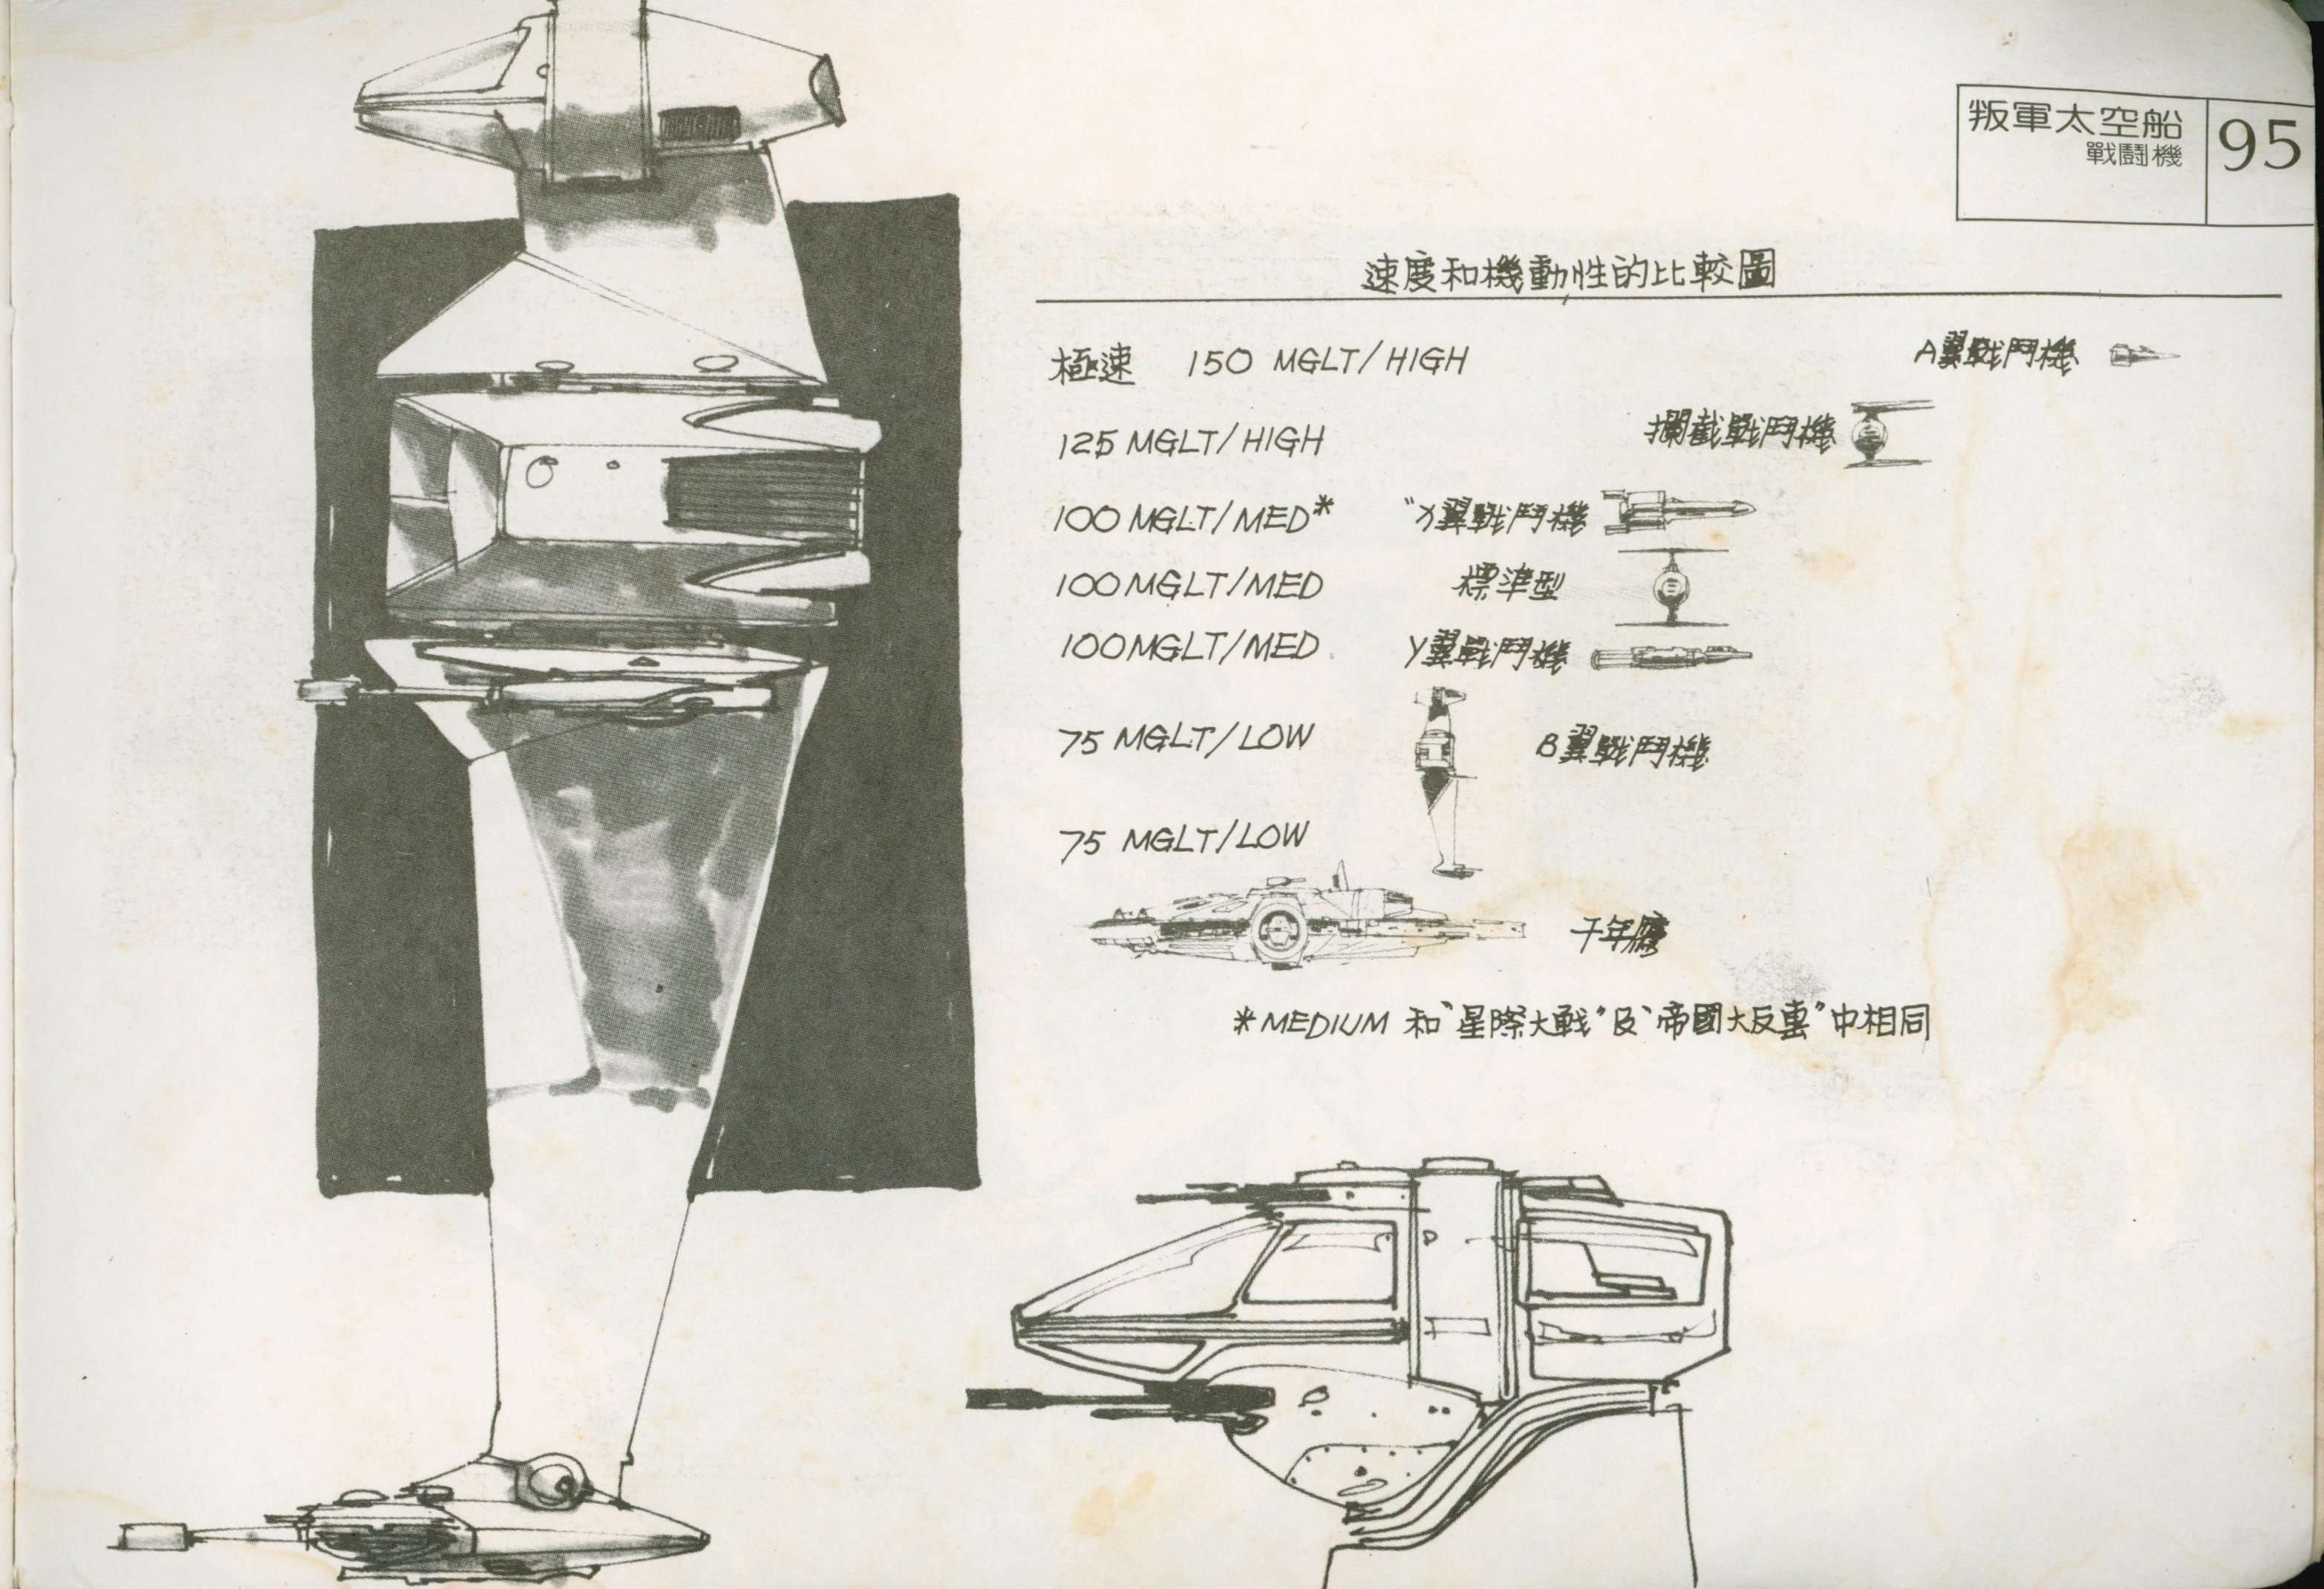 叛軍太空船
戰鬪機
95
速度和機動性的比較圖
極速 150 MGLT/HIGH A翼戰鬥機
125 MGLT/HIGH 攔截戰鬥機
100 MGLT/MED* "X翼戰鬥機
100 MGLT/MED 標準型
100 MGLT/MED Y翼戰鬥機
75 MGLT/LOW B翼戰鬥機
75 MGLT/LOW
千年鷹
*MEDIUM 和"星際大戰"及"帝國大反擊"中相同